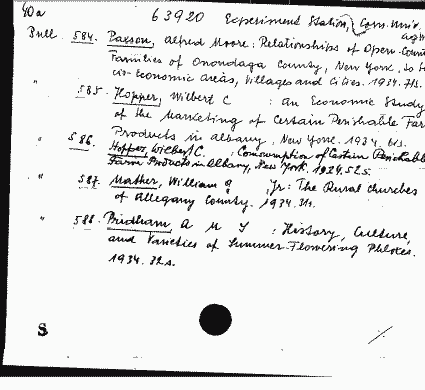 60a 63920 Experiment Station, Corn. Univ.
agr
Bull. 584. Paxson, Alfred Moore: Relationships of Open-Coun
Families of Onondaga County, New York, to
cio-Economic Areas, Villages and Cities. 1934.
" 585. Hopper, Wilbert C : an Economic Study
of the Marketing of Certain Perishable Far
Products in Albany, New York. 1934. 61s.
" 586. Hopper, Wilbert C. , Consumption of Certain Perishable
Farm Products in Albany, New York, 1934, 52s.
" 587. Mather, William G , Jr: The Rural Churches
of Allegany County. 1934. 31s.
" 588. Pridham, A M S : History, Culture,
and Varieties of Summer-Flowering Phloxes.
1934. 32s.
S